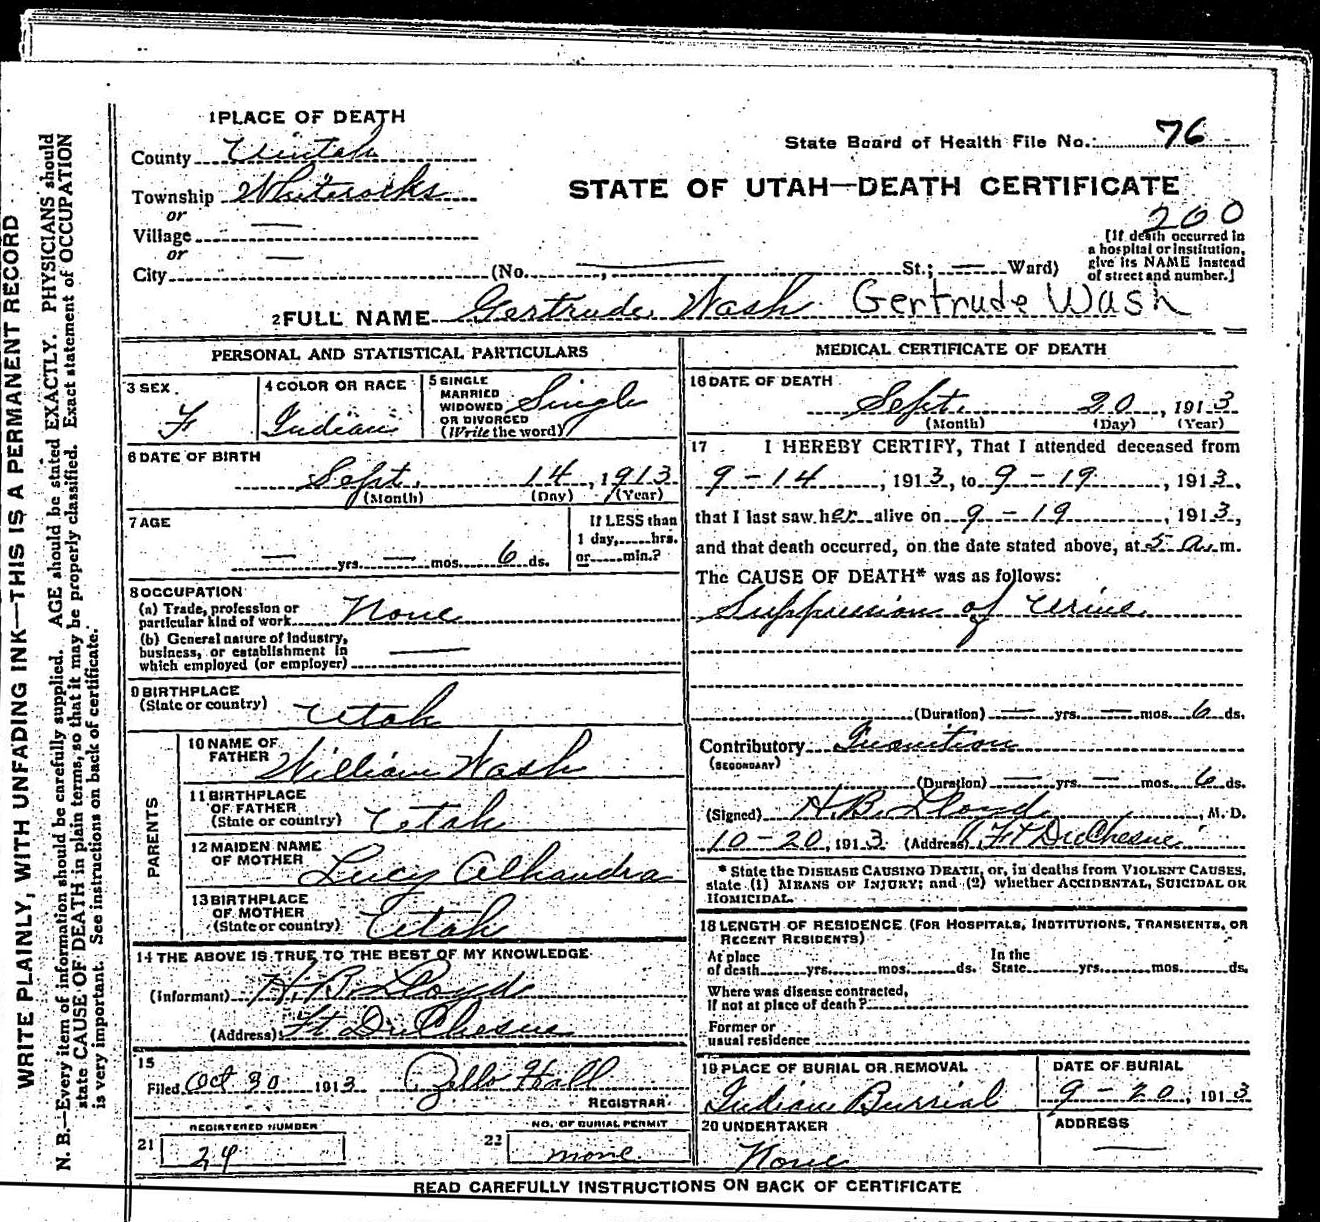 1 PLACE OF DEATH
County Uintah
State Board of Health File No. 76
Township Whiterocks
STATE OF UTAH—DEATH CERTIFICATE
or
200
Village —
or
City — (No. , St.; — Ward)
[If death occurred in
a hospital or institution,
give its NAME instead
of street and number.]
2 FULL NAME Gertrude Wash Gertrude Wash
PERSONAL AND STATISTICAL PARTICULARS
3 SEX F
4 COLOR OR RACE Indian
5 SINGLE
MARRIED
WIDOWED
OR DIVORCED
(Write the word) Single
6 DATE OF BIRTH
Sept. 14, 1913
(Month) (Day) (Year)
7 AGE
— yrs. — mos. 6 ds.
If LESS than
1 day, hrs.
or min.?
8 OCCUPATION
(a) Trade, profession or
particular kind of work None
(b) General nature of industry,
business, or establishment in
which employed (or employer) —
9 BIRTHPLACE
(State or country) Utah
PARENTS
10 NAME OF
FATHER William Wash
11 BIRTHPLACE
OF FATHER
(State or country) Utah
12 MAIDEN NAME
OF MOTHER Lucy Alhandra
13 BIRTHPLACE
OF MOTHER
(State or country) Utah
14 THE ABOVE IS TRUE TO THE BEST OF MY KNOWLEDGE
(Informant) H. B. Lloyd
(Address) Ft DuChesne
15
Filed Oct 30 1913 Zello Hall
REGISTRAR
REGISTERED NUMBER
21 24
NO. OF BURIAL PERMIT
22 none
MEDICAL CERTIFICATE OF DEATH
16 DATE OF DEATH
Sept. 20, 1913
(Month) (Day) (Year)
17 I HEREBY CERTIFY, That I attended deceased from
9-14, 1913, to 9-19, 1913,
that I last saw her alive on 9-19, 1913,
and that death occurred, on the date stated above, at 5 a.m.
The CAUSE OF DEATH* was as follows:
Suppression of Urine
(Duration) — yrs. — mos. 6 ds.
Contributory Inanition
(SECONDARY)
(Duration) — yrs. — mos. 6 ds.
(Signed) H. B. Lloyd, M. D.
10-20, 1913 (Address) Ft DuChesne
* State the DISEASE CAUSING DEATH, or, in deaths from VIOLENT CAUSES,
state (1) MEANS OF INJURY; and (2) whether ACCIDENTAL, SUICIDAL OR
HOMICIDAL.
18 LENGTH OF RESIDENCE (FOR HOSPITALS, INSTITUTIONS, TRANSIENTS, OR
RECENT RESIDENTS)
At place
of death yrs. mos. ds.
In the
State yrs. mos. ds.
Where was disease contracted,
If not at place of death?
Former or
usual residence
19 PLACE OF BURIAL OR REMOVAL
Indian Burrial
DATE OF BURIAL
9-20, 1913
20 UNDERTAKER
None
ADDRESS
—
READ CAREFULLY INSTRUCTIONS ON BACK OF CERTIFICATE
WRITE PLAINLY, WITH UNFADING INK—THIS IS A PERMANENT RECORD
N. B.—Every item of information should be carefully supplied. AGE should be stated EXACTLY. PHYSICIANS should
state CAUSE OF DEATH in plain terms, so that it may be properly classified. Exact statement of OCCUPATION
is very important. See instructions on back of certificate.